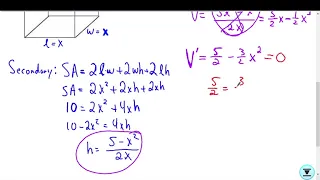 w=x
l=x
Secondary: SA = 2lw + 2wh + 2lh
SA = 2x² + 2xh + 2xh
10 = 2x² + 4xh
10 - 2x² = 4xh
h = 5-x² / 2x
= 5/2 x - 1/2 x³
V' = 5/2 - 3/2 x² = 0
5/2 = 3